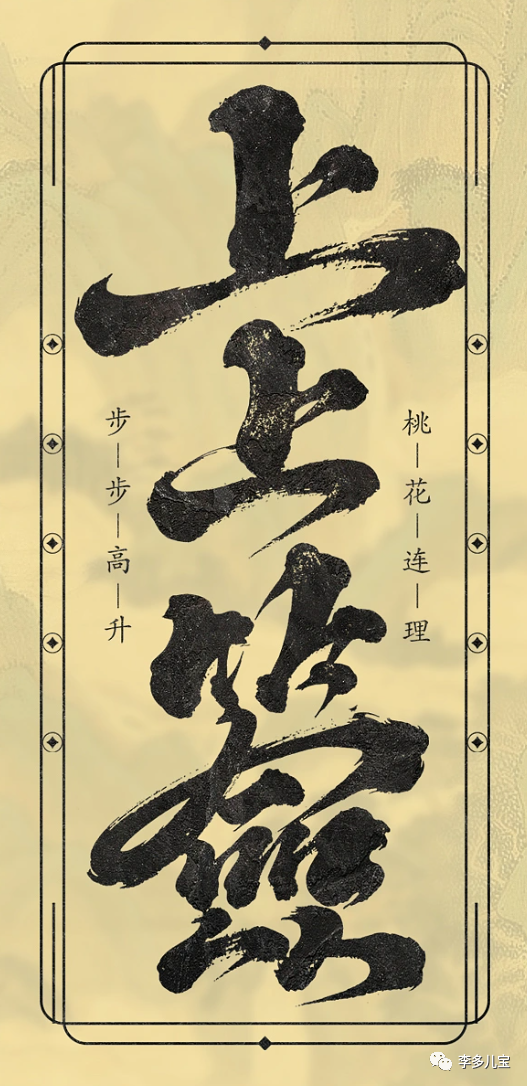 上上簽
桃花连理
步步高升
李多儿宝